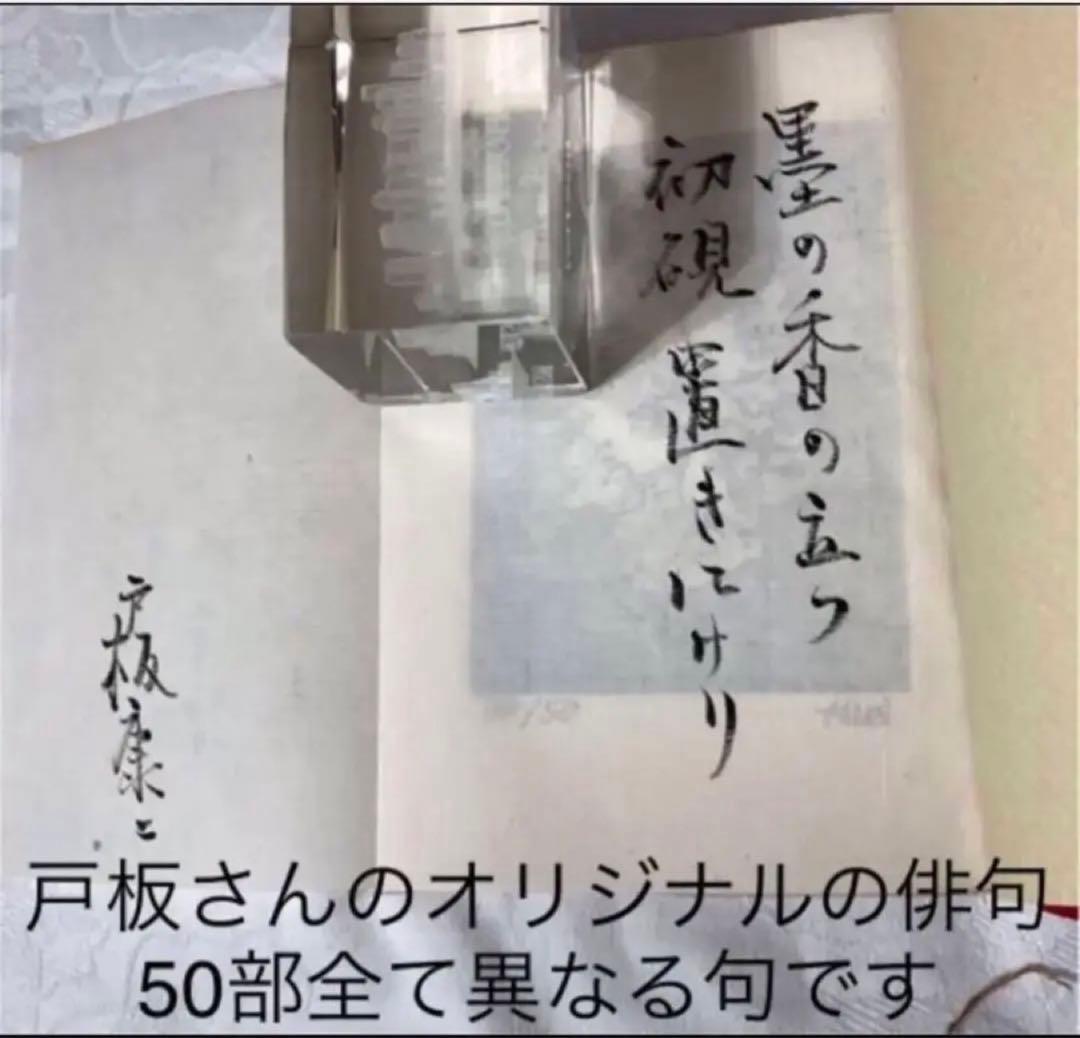 墨の香の立つ
初硯置きにけり
戸板康二
/50
戸板さんのオリジナルの俳句
50部全て異なる句です